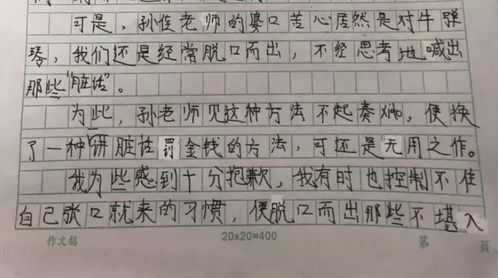 可是，孙俊老师的婆口苦心居然是对牛弹
琴，我们还是经常脱口而出，不经思考地喊出
那些“脏话”。
为此，孙老师见这种方法不起奏效，便换
了一种讲脏话罚金钱的方法，可还是无用之作。
我为些感到十分抱歉，我有时也控制不住
自己张口就来的习惯，便脱口而出那些不堪入
作文稿 20x20=400 第 页